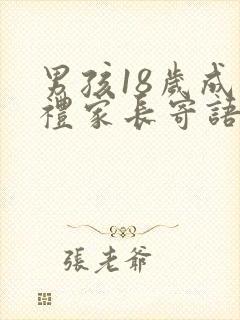 男孩18歲成
禮家長寄語
張老爺